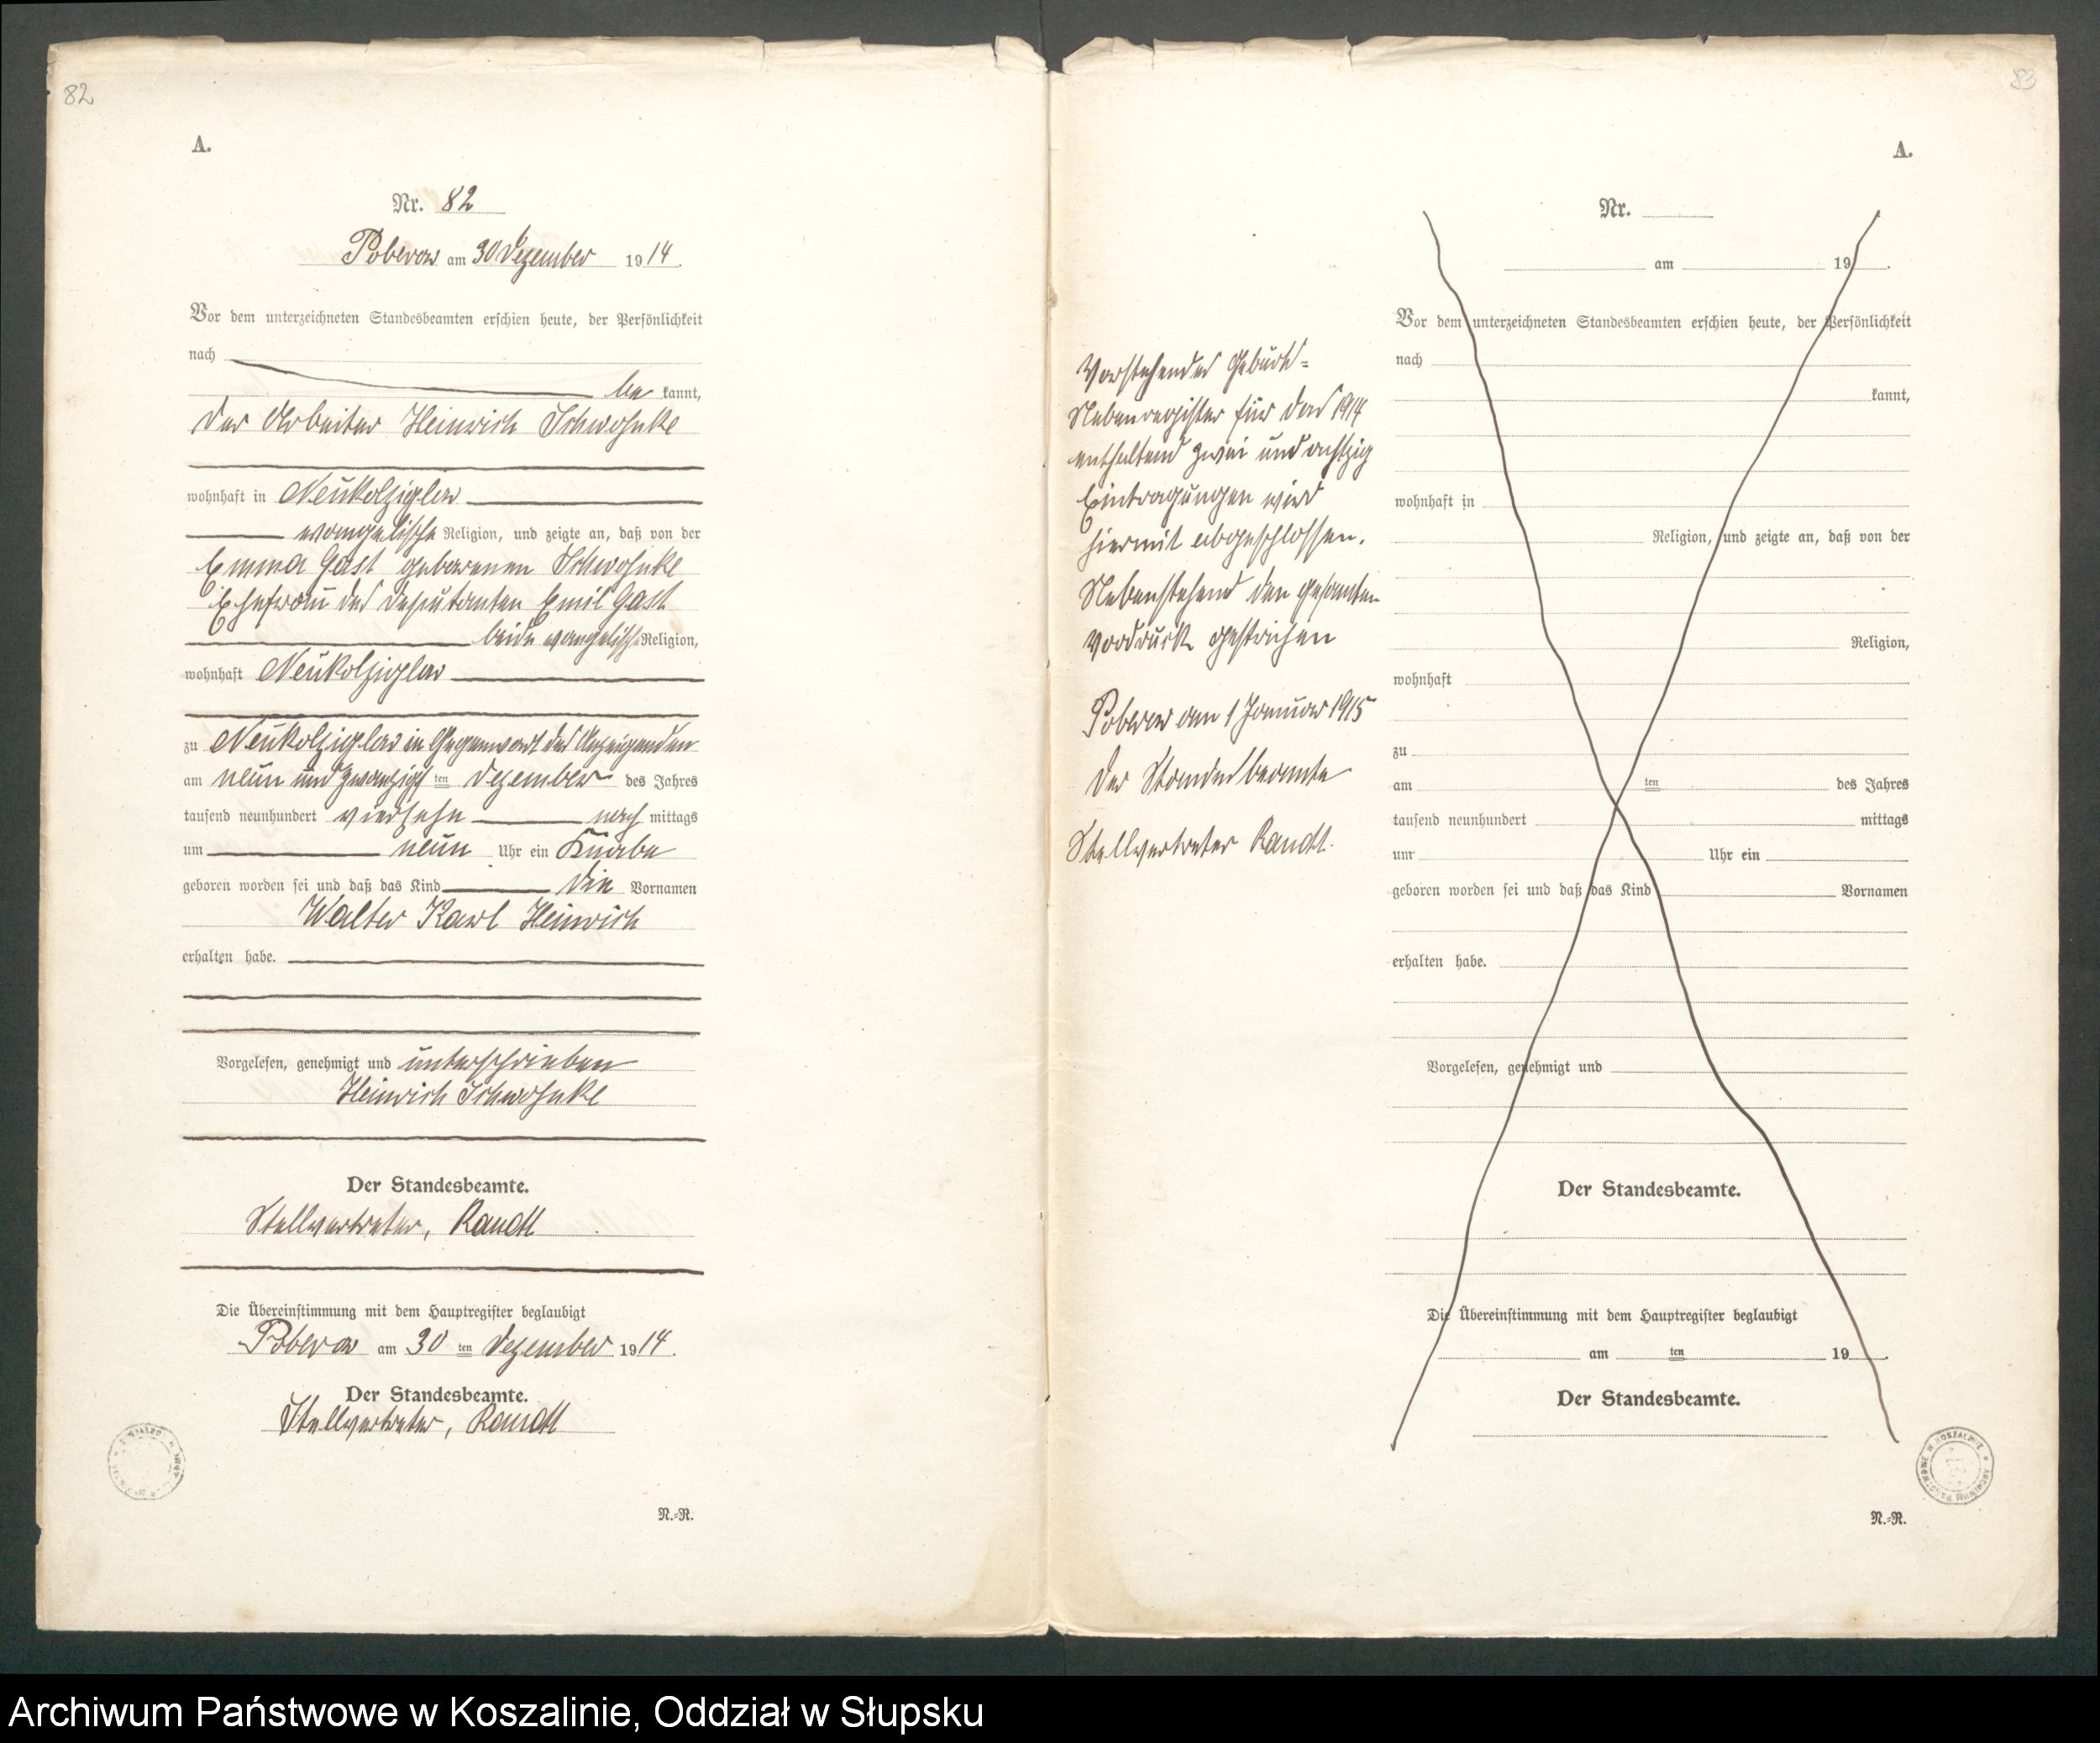 82
A.
Nr. 82
Poberow am 30 Dezember 1914.
Vor dem unterzeichneten Standesbeamten erschien heute, der Persönlichkeit
nach
be kannt,
der Arbeiter Heinrich Schwohnke
wohnhaft in Neukolziglow
evangelische Religion, und zeigte an, daß von der
Emma Gast geborenen Schwohnke
Ehefrau des Deputanten Emil Gast
beide evangelisch Religion,
wohnhaft Neukolziglow
zu Neukolziglow in Gegenwart des Anzeigenden
am neun und zwanzigsten Dezember des Jahres
tausend neunhundert vierzehn nach mittags
um neun Uhr ein Knabe
geboren worden sei und daß das Kind die Vornamen
Walter Karl Heinrich
erhalten habe.
Vorgelesen, genehmigt und unterschrieben
Heinrich Schwohnke
Der Standesbeamte.
Stellvertreter, Randt
Die Übereinstimmung mit dem Hauptregister beglaubigt
Poberow am 30 ten Dezember 1914.
Der Standesbeamte.
Stellvertreter, Randt
N.-R.
83
A.
Nr.
am 19 .
Vor dem unterzeichneten Standesbeamten erschien heute, der Persönlichkeit
nach
kannt,
wohnhaft in
Religion, und zeigte an, daß von der
Religion,
wohnhaft
zu
am ten des Jahres
tausend neunhundert mittags
um Uhr ein
geboren worden sei und daß das Kind Vornamen
erhalten habe.
Vorgelesen, genehmigt und
Der Standesbeamte.
Die Übereinstimmung mit dem Hauptregister beglaubigt
am ten 19 .
Der Standesbeamte.
N.-R.
Vorstehendes Geburts-
Nebenregister für das 1914
enthaltend zwei und achtzig
Eintragungen wird
hiermit abgeschlossen.
Nebenstehend den gesamten
Vordruck gestrichen
Poberow am 1 Januar 1915
Der Standesbeamte
Stellvertreter Randt.
Archiwum Państwowe w Koszalinie, Oddział w Słupsku